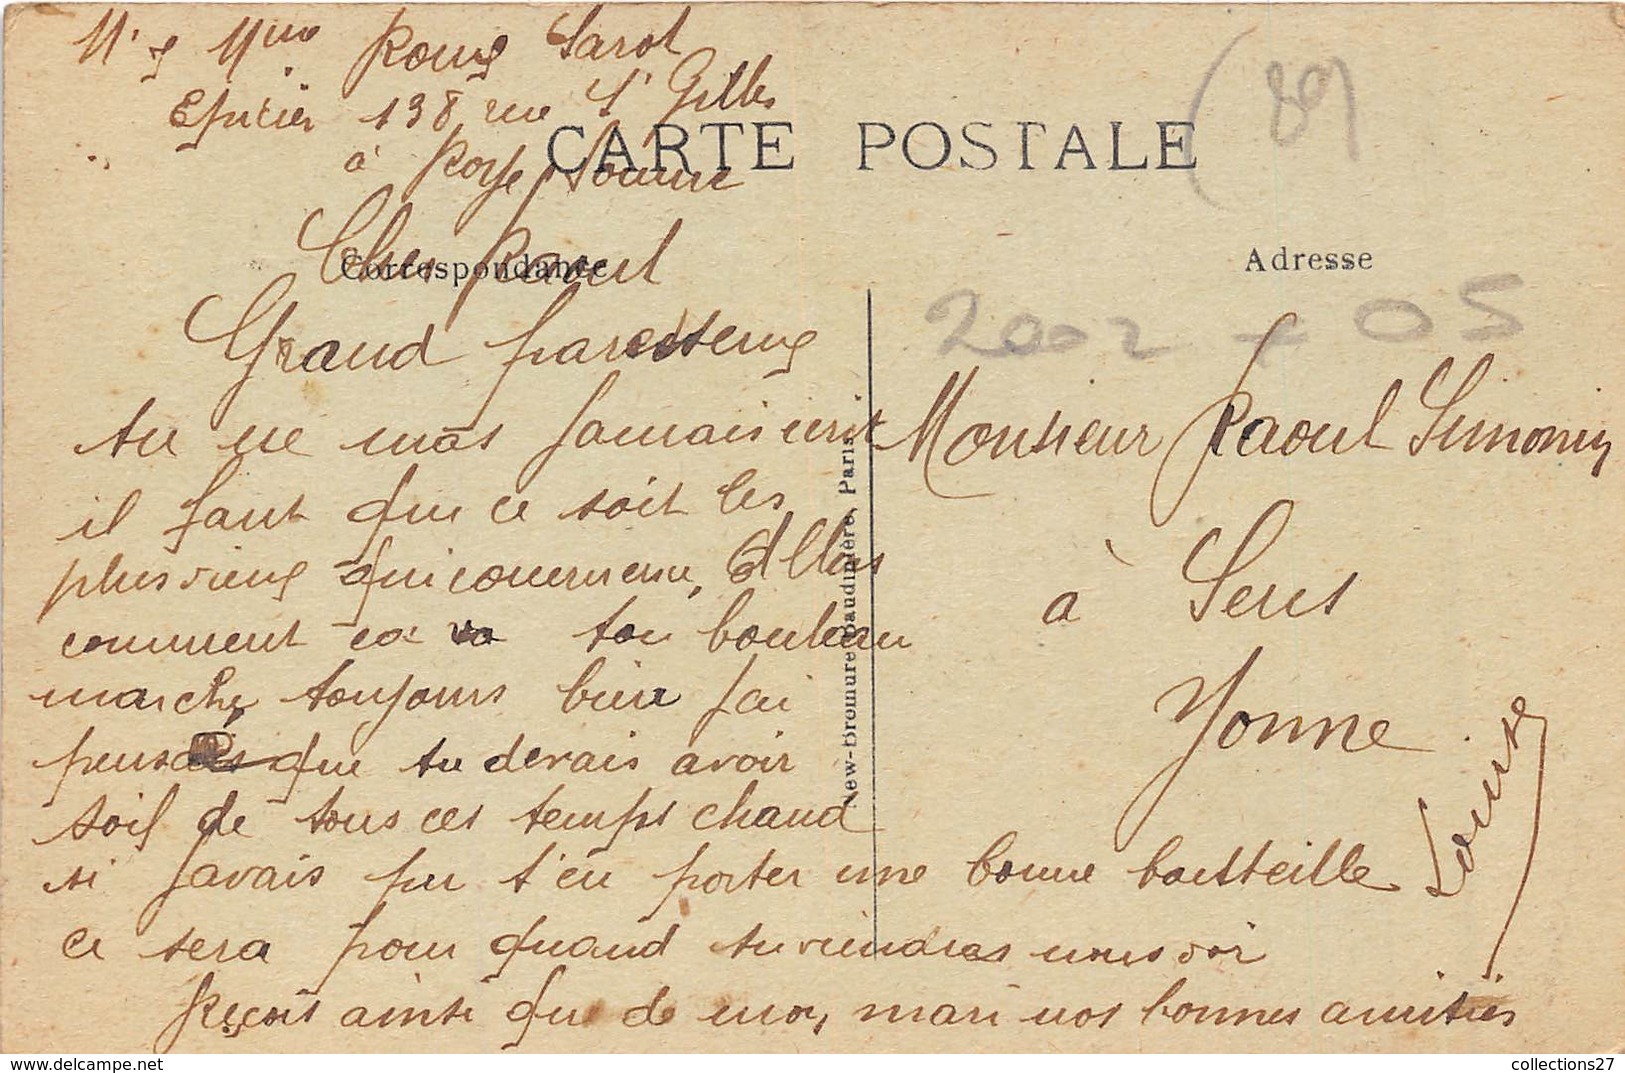 Mr & Mme Roux Sarot
Epicier 138 rue St Gilles
à Roye Somme
CARTE POSTALE
(89)
Correspondance
Cher Raoul
Grand paresseux
tu ne mas jamais ecrit
il faut que ce soit les
plus vieux qui commence, Allons
comment ca va ton bouleau
marche, toujours bien jai
pensé que tu devais avoir
soif de tous ces temps chaud
si javais pu t'en porter une bonne boutteille
ce sera pour quand tu viendras nous voir
Reçois ainsi que de moi, mari nos bonnes amitiés
Louise
New-Bromure Baudinière, Paris
Adresse
2002 + 05
Monsieur Raoul Simonin
à Sens
Yonne
collections27